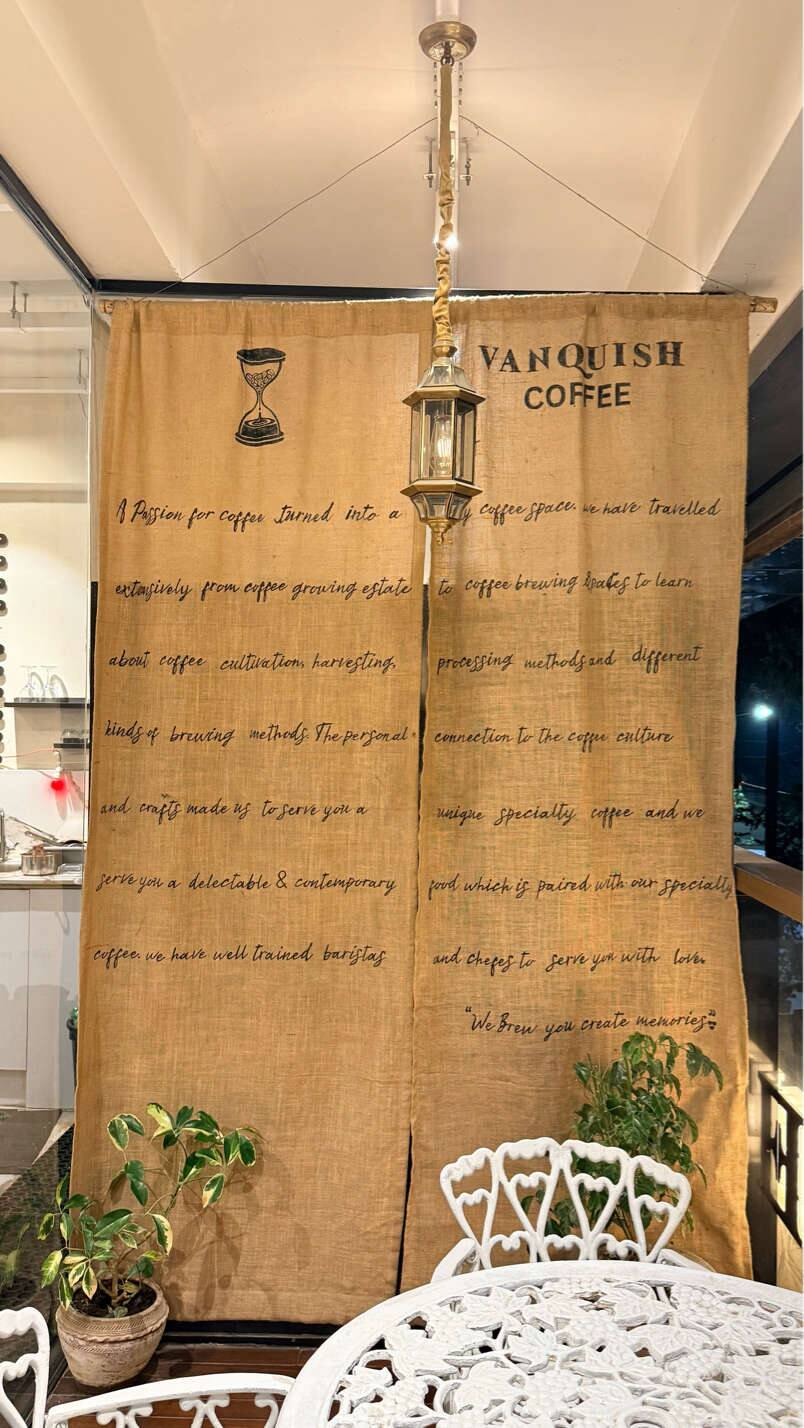 VANQUISH
COFFEE
A Passion for coffee turned into a coffee space. we have travelled
extensively from coffee growing estate to coffee brewing to learn
about coffee cultivation, harvesting, processing methods and different
kinds of brewing methods. The personal connection to the coffee culture
and crafts made us to serve you a unique specialty coffee and we
serve you a delectable & contemporary food which is paired with our specialty
coffee. we have well trained baristas and chefes to serve you with love.
"We Brew you create memories"